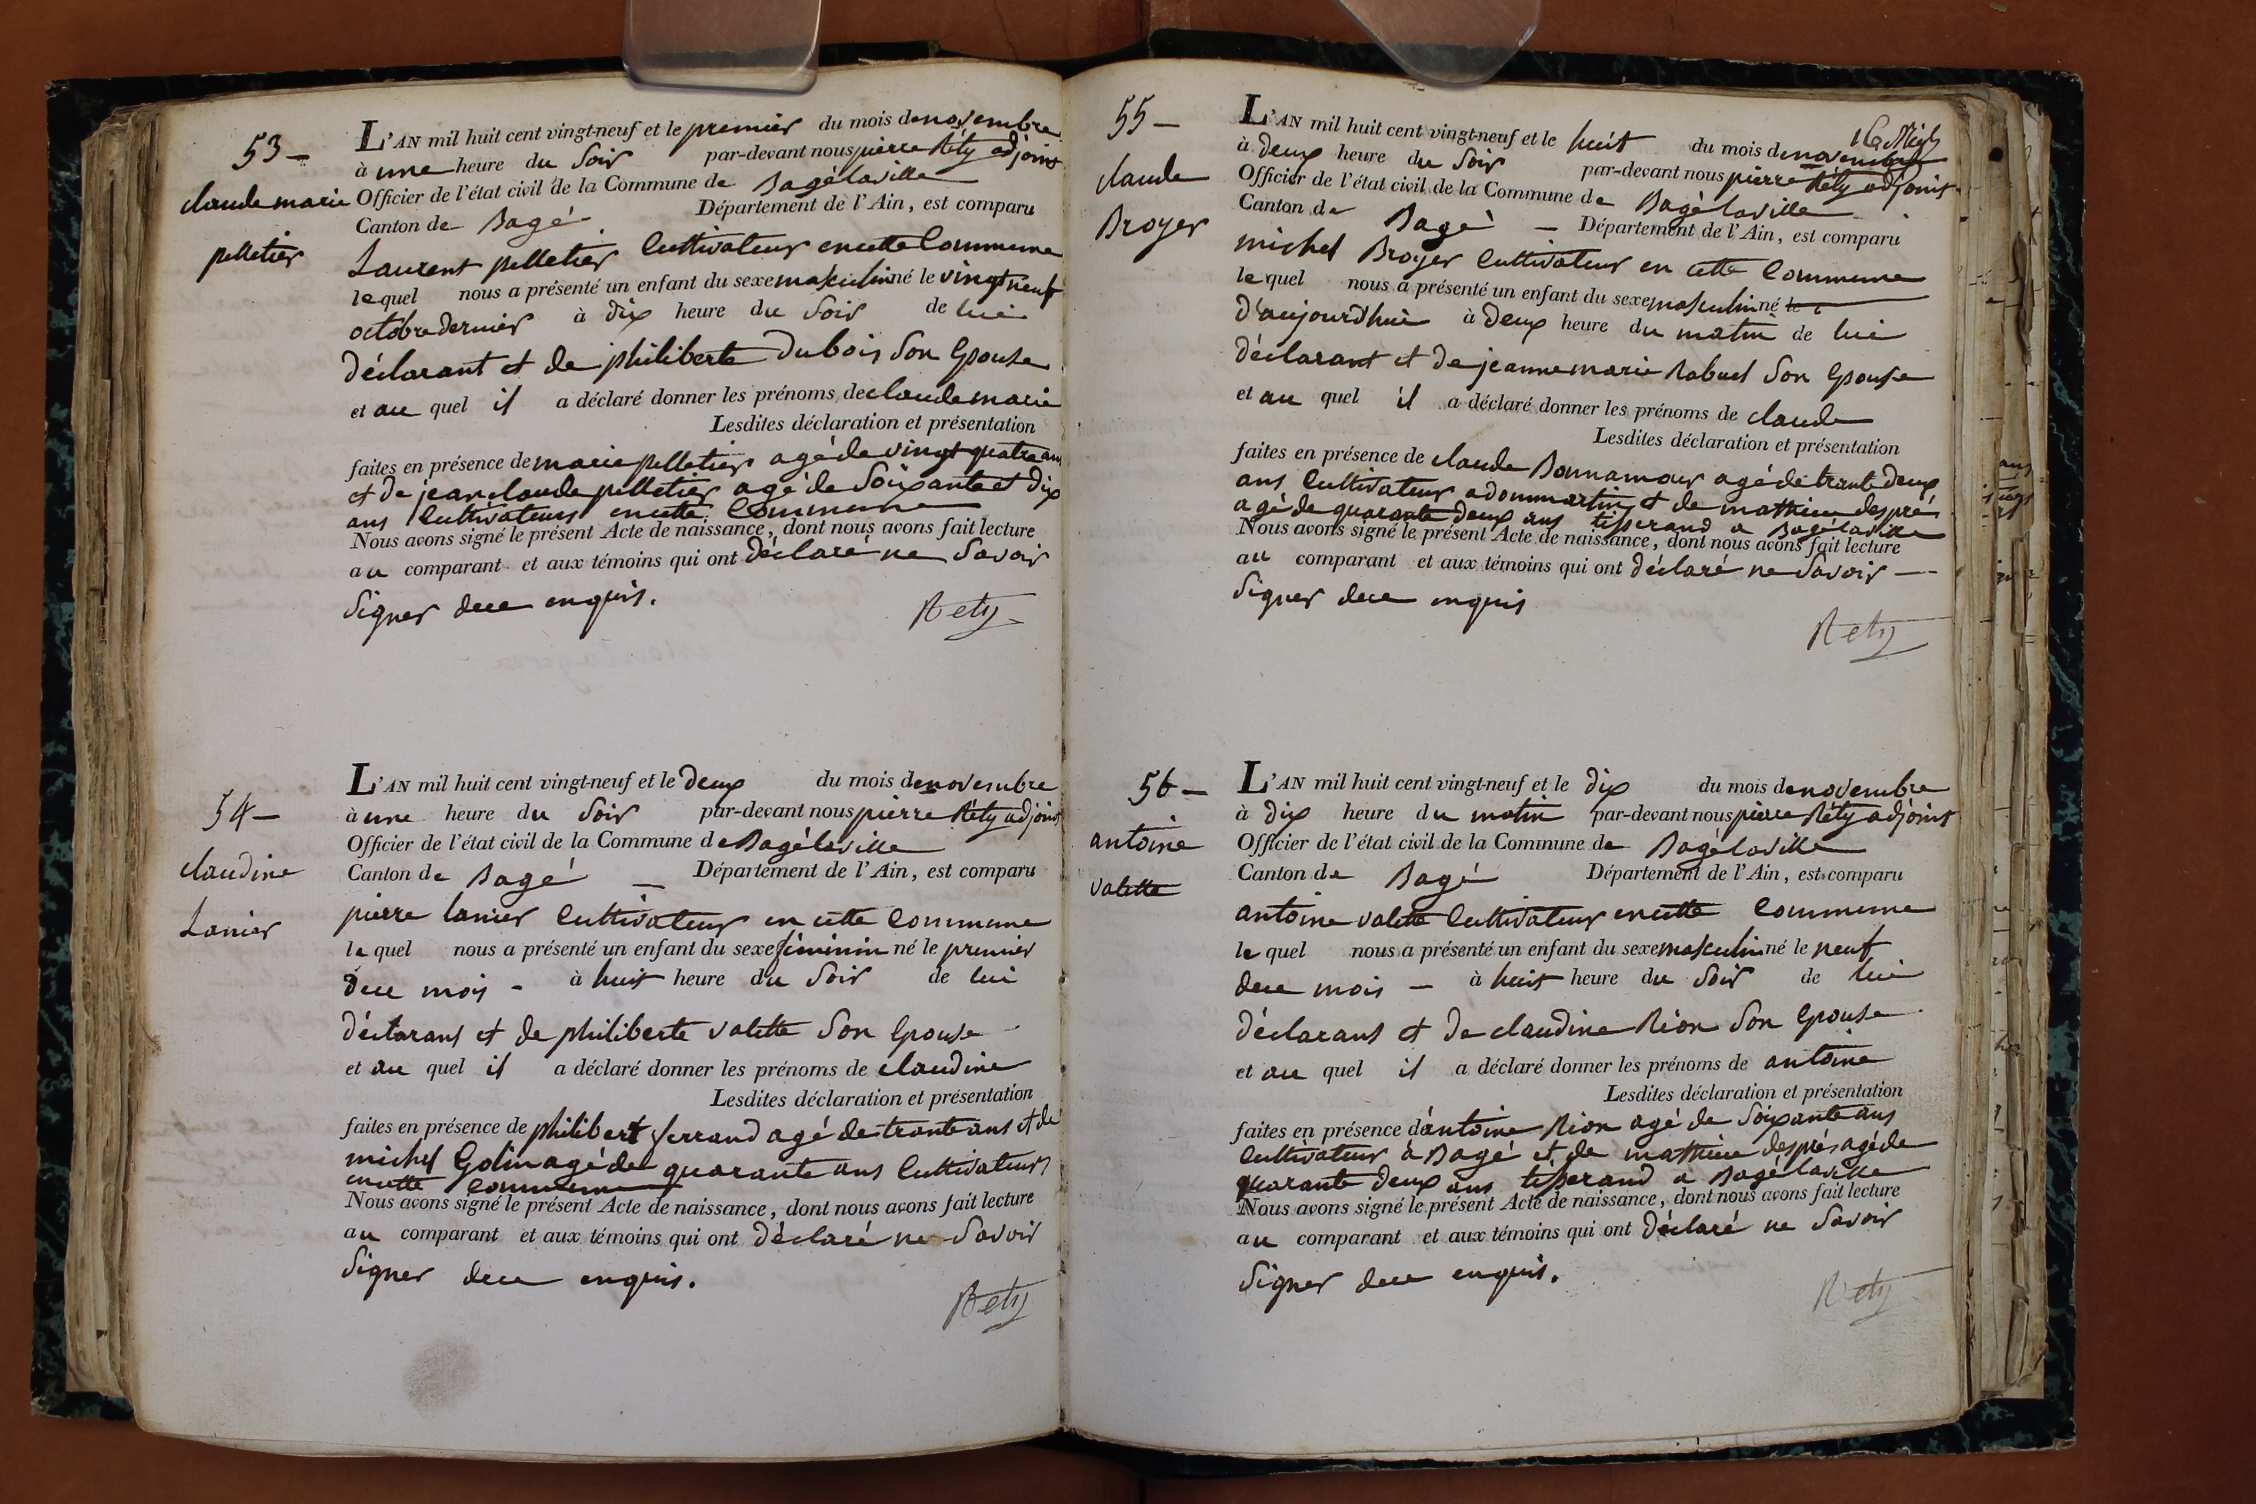 53 –
claude marie
pelletier
L'AN mil huit cent vingt-neuf et le premier du mois de novembre
à une heure du Soir par-devant nous pierre Réty adjoint
Officier de l'état civil de la Commune de Bagélaville
Canton de Bagé Département de l'Ain, est comparu
Laurent pelletier Cultivateur en cette Commune
le quel nous a présenté un enfant du sexe masculin né le vingt neuf
octobre dernier à dix heure du Soir de lui
déclarant et de philiberte Dubois Son Epouse
et au quel il a déclaré donner les prénoms de claude marie
Lesdites déclaration et présentation
faites en présence de marie pelletier agé de vingt quatre ans
et de jean claude pelletier agé de Soixante et dix
ans Cultivateurs en cette Commune
Nous avons signé le présent Acte de naissance, dont nous avons fait lecture
au comparant et aux témoins qui ont déclaré ne Savoir
Signer de ce enquis.
Rety
54 –
claudine
Lanier
L'AN mil huit cent vingt-neuf et le deux du mois de novembre
à une heure du Soir par-devant nous pierre Réty adjoint
Officier de l'état civil de la Commune de Bagélaville
Canton de Bagé – Département de l'Ain, est comparu
pierre lanier Cultivateur en cette Commune
le quel nous a présenté un enfant du sexe féminin né le premier
de ce mois - à huit heure du Soir de lui
déclarant et de philiberte valette Son Epouse
et au quel il a déclaré donner les prénoms de claudine
Lesdites déclaration et présentation
faites en présence de philibert ferrand agé de trante ans et de
michel Golin agé de quarante ans Cultivateurs
en cette Commune
Nous avons signé le présent Acte de naissance, dont nous avons fait lecture
au comparant et aux témoins qui ont déclaré ne Savoir
Signer de ce enquis.
Rety
55 –
claude
Broyer
L'AN mil huit cent vingt-neuf et le huit du mois de novembre
à deux heure du Soir par-devant nous pierre Réty adjoint
Officier de l'état civil de la Commune de Bagélaville
Canton de Bagé – Département de l'Ain, est comparu
michel Broyer Cultivateur en cette Commune
le quel nous a présenté un enfant du sexe masculin né le
d'aujourd'hui à deux heure du matin de lui
déclarant et de jeanne marie Rabuel Son Epouse
et au quel il a déclaré donner les prénoms de claude
Lesdites déclaration et présentation
faites en présence de claude Bonnamour agé de trante deux
ans Cultivateur a dommartin et de mathieu despré
agé de quarante deux ans tisserand a Bagélaville
Nous avons signé le présent Acte de naissance, dont nous avons fait lecture
au comparant et aux témoins qui ont déclaré ne Savoir –
Signer de ce enquis
Rety
56 –
antoine
valette
L'AN mil huit cent vingt-neuf et le dix du mois de novembre
à dix heure du matin par-devant nous pierre Réty adjoint
Officier de l'état civil de la Commune de Bagélaville
Canton de Bagé Département de l'Ain, est comparu
antoine valette Cultivateur en cette Commune
le quel nous a présenté un enfant du sexe masculin né le neuf
de ce mois – à huit heure du Soir de lui
déclarant et de claudine Rion Son Epouse
et au quel il a déclaré donner les prénoms de antoine
Lesdites déclaration et présentation
faites en présence d'antoine Rion agé de Soixante ans
Cultivateur à Bagé et de mathieu després agé de
quarante deux ans tisserand a Bagélaville
Nous avons signé le présent Acte de naissance, dont nous avons fait lecture
au comparant et aux témoins qui ont déclaré ne Savoir
Signer de ce enquis.
Rety